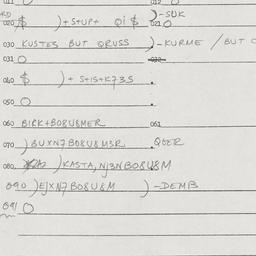 011 O 012 O
020 $ )+S+UP+ Qi $ )-SUK
021 O
030 KUSTES BUT QRUSS )-KURME / BUT
031 O 032
040 $ ) + S+1S+K73S
050 O
060 BIRK+BO8U8MER 061
070 )BUXN7BO8U8M3R QUER
080 )KASTA, NJ3NBO8U8M
090 )EJXN7BO8U8M )-DEMB
091 O